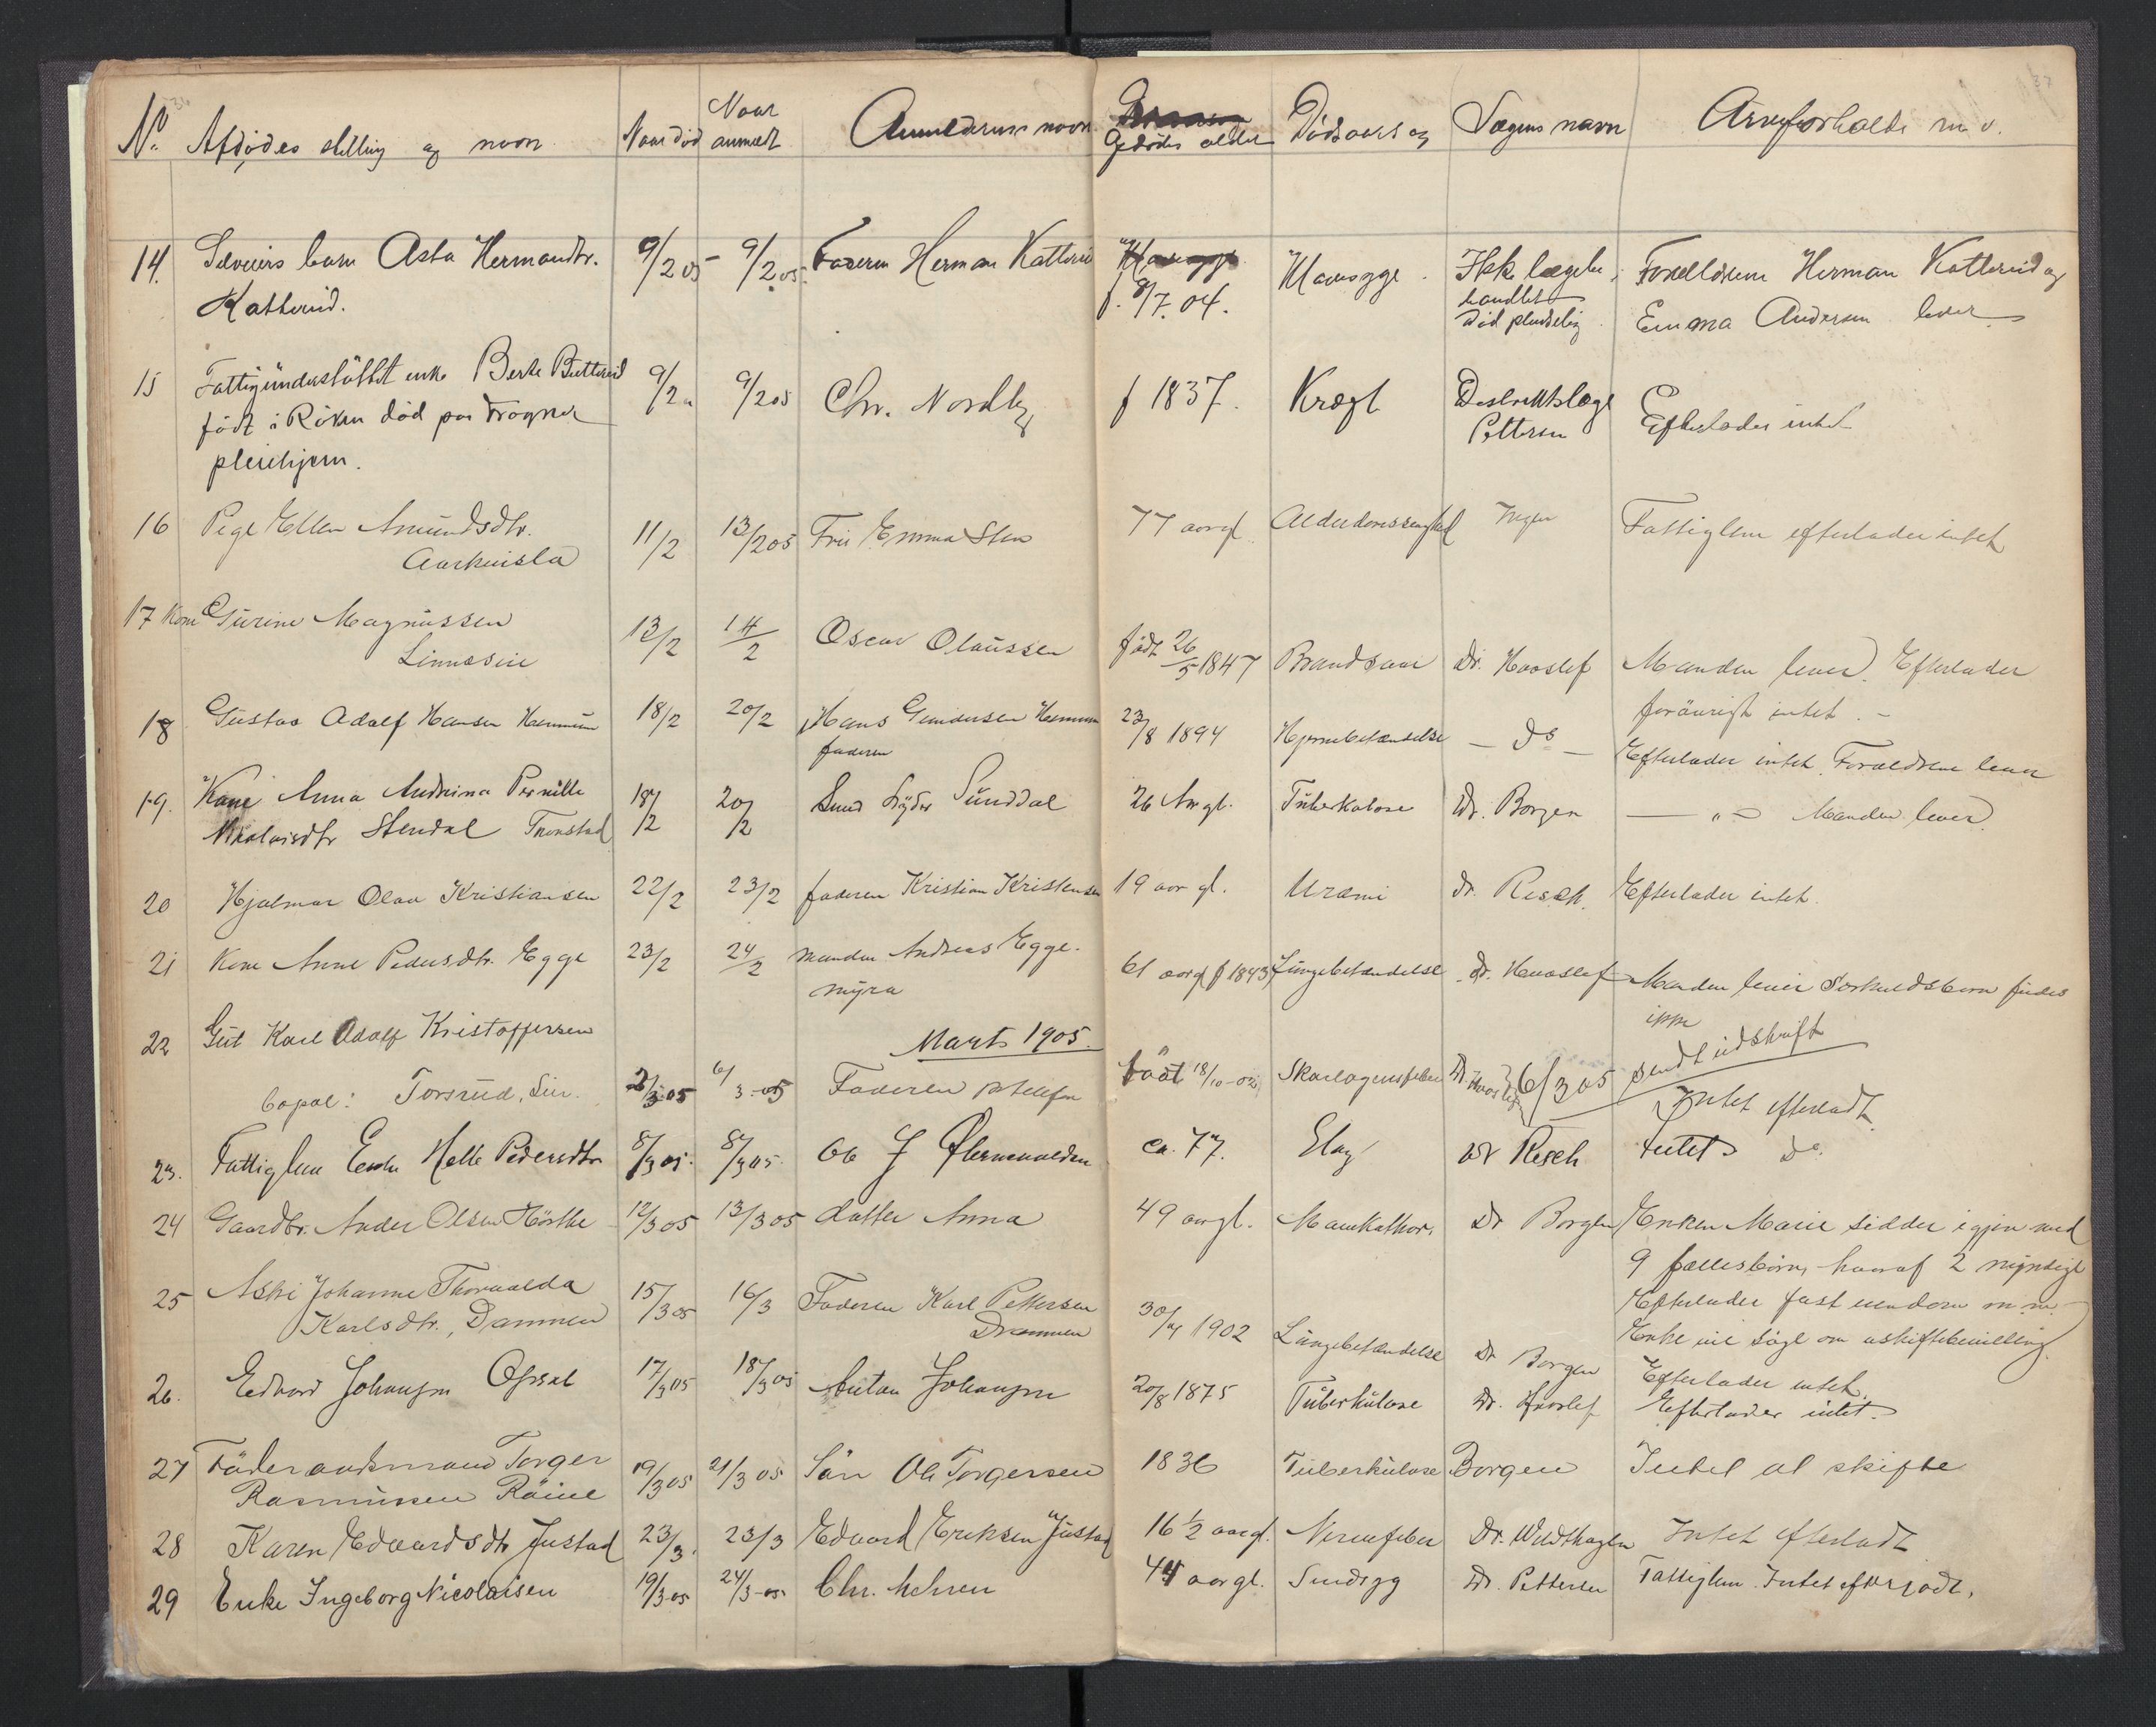 No. Afdødes stilling og navn Naar død Naar anmeldt Anmelderens navn Afdødes alder Dødsaarsag Lægens navn Arveforholde m. v.
14. Selveiers barn Asta Hermandtr. 9/2 05 9/2 05. Faderen Herman Katterud Mavesyge. Ikke lægebe- Foreldrene Herman Katterud og
Katterud. f. 8/7. 04. handlet Død pludselig Emma Andersen lever
15 Fattigünderstüttet enke Berte 9/2 9/2 05 Chr. Nordby f 1837. Kræft Destriktslæge Efterlader intet
født i Röken død paa Frogner Pettersen
pleiehjem.
16 Pige Ellen Amündsdtr. 11/2 13/2 05 Frü Emma Sten 77 aar gl. Alderdomssvaghed Ingen Fattiglem efterlader intet
17 Kone Gürine Magnüssen 13/2 14/2 Oscar Olaüssen født 26/5 1847 Brandsaar Dr. Haaslef Manden lever. Efterlader
forövrigt intet. -
18 Güstav Adolf Hansen 18/2 20/2 Hans Gundersen 23/8 1894 Hjernebetændelse - Do - Efterlader intet. Foreldrene lever
faderen
19. Kone Anna Andrina Pernille 18/2 20/2 Sünddal 26 Aar gl. Tüberkulose Dr. Borgen - " - Manden lever.
Nikolaisdtr Stendal Tronstad
20 Hjalmar Olav Kristiansen 22/2 23/2 faderen Kristian Kristensen 19 aar gl. Uræmi Dr. Resch. Efterlader intet.
21 Kone Anne Pedersdtr. Egge 23/2 24/2 manden Andreas Egge. 61 aar gl f 1843 Lüngebetændelse Dr. Haaslef Manden lever Særkuldsbørn findes
myra ikke
22 Güt Karl Adolf Kristoffersen Marts 1905. 6/3 05 sendt üdskrift
Torsrüd, Lier. 2/3-05 6/3-05 Faderen pr telefon födt 18/10-02 Skarlagensfeber Dr. Haaslef Intet efterladt
23. Fattiglem Enke Helle Pedersdtr 8/3 05. 8/3 05. Ole J ca. 77. Slag Dr Resch Intet do.
24 Gaardbr. Anders Olsen Hörthe 12/3 05 13/3 05 datter Anna 49 aar gl. Mavekathar. Dr Borgen Enken Marie sidder igjen med
9 fællesbörn, hvoraf 2 myndige
Efterlader fast eiendom m.m.
Enke vil søge om uskiftebevilling.
25 Aslei Johanne Thorvalda 15/3 05 16/3 Faderen Karl Pettersen 30/4 1902 Lüngebetændelse Dr Borgen Efterlader intet.
Karlsdtr., Dammen Drammen
26. Edvard Johansen Opsal 17/3 05 18/3 05 Anton Johansen 20/8 1875 Tüberkülose Dr. Haaslef Efterlader intet.
27 Föderaadsmand Torger 19/3 05 21/3 05 Sön Ole Torgersen 1836 Tüberkülose Borgen Intet at skifte
Rasmüssen
28 Karen Edvardsdtr Justad 23/3. 23/3 Edvard Eriksen Justad 16 1/2 aar gl. Nervefeber Dr. Wildthagen Intet efterladt
29 Enke Ingeborg Nicolaisen 19/3-05 24/3-05 Chr. Mehren 44 aar gl. Sindsyg Dr. Pettersen Fattiglem. Intet efterladt.